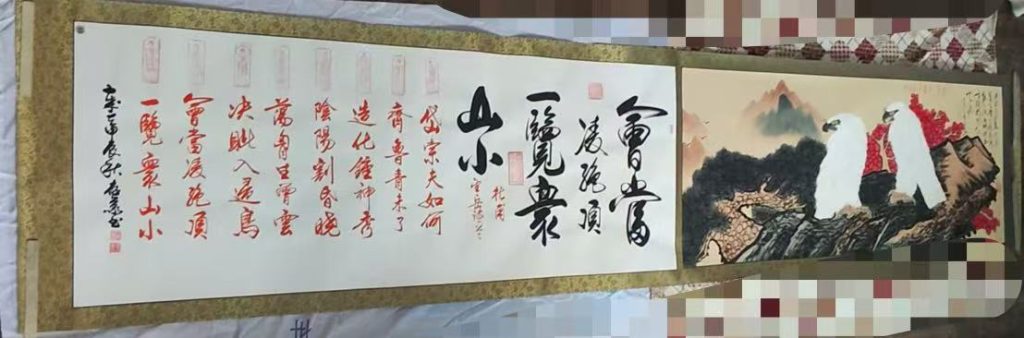 會當
凌絶頂
一覽衆
山小
杜甫
岱宗夫如何
齊魯青未了
造化鍾神秀
陰陽割昏曉
蕩胷生曾雲
决眦入歸鳥
會當凌絶頂
一覽衆山小